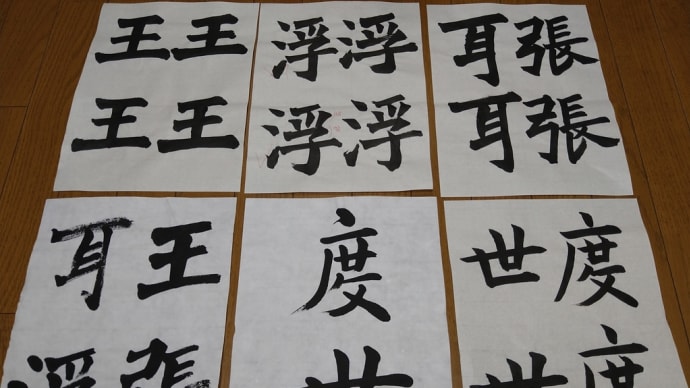 王王
王王
浮浮
浮浮
張張
耳耳
王張
耳浮
度世
度度
世世